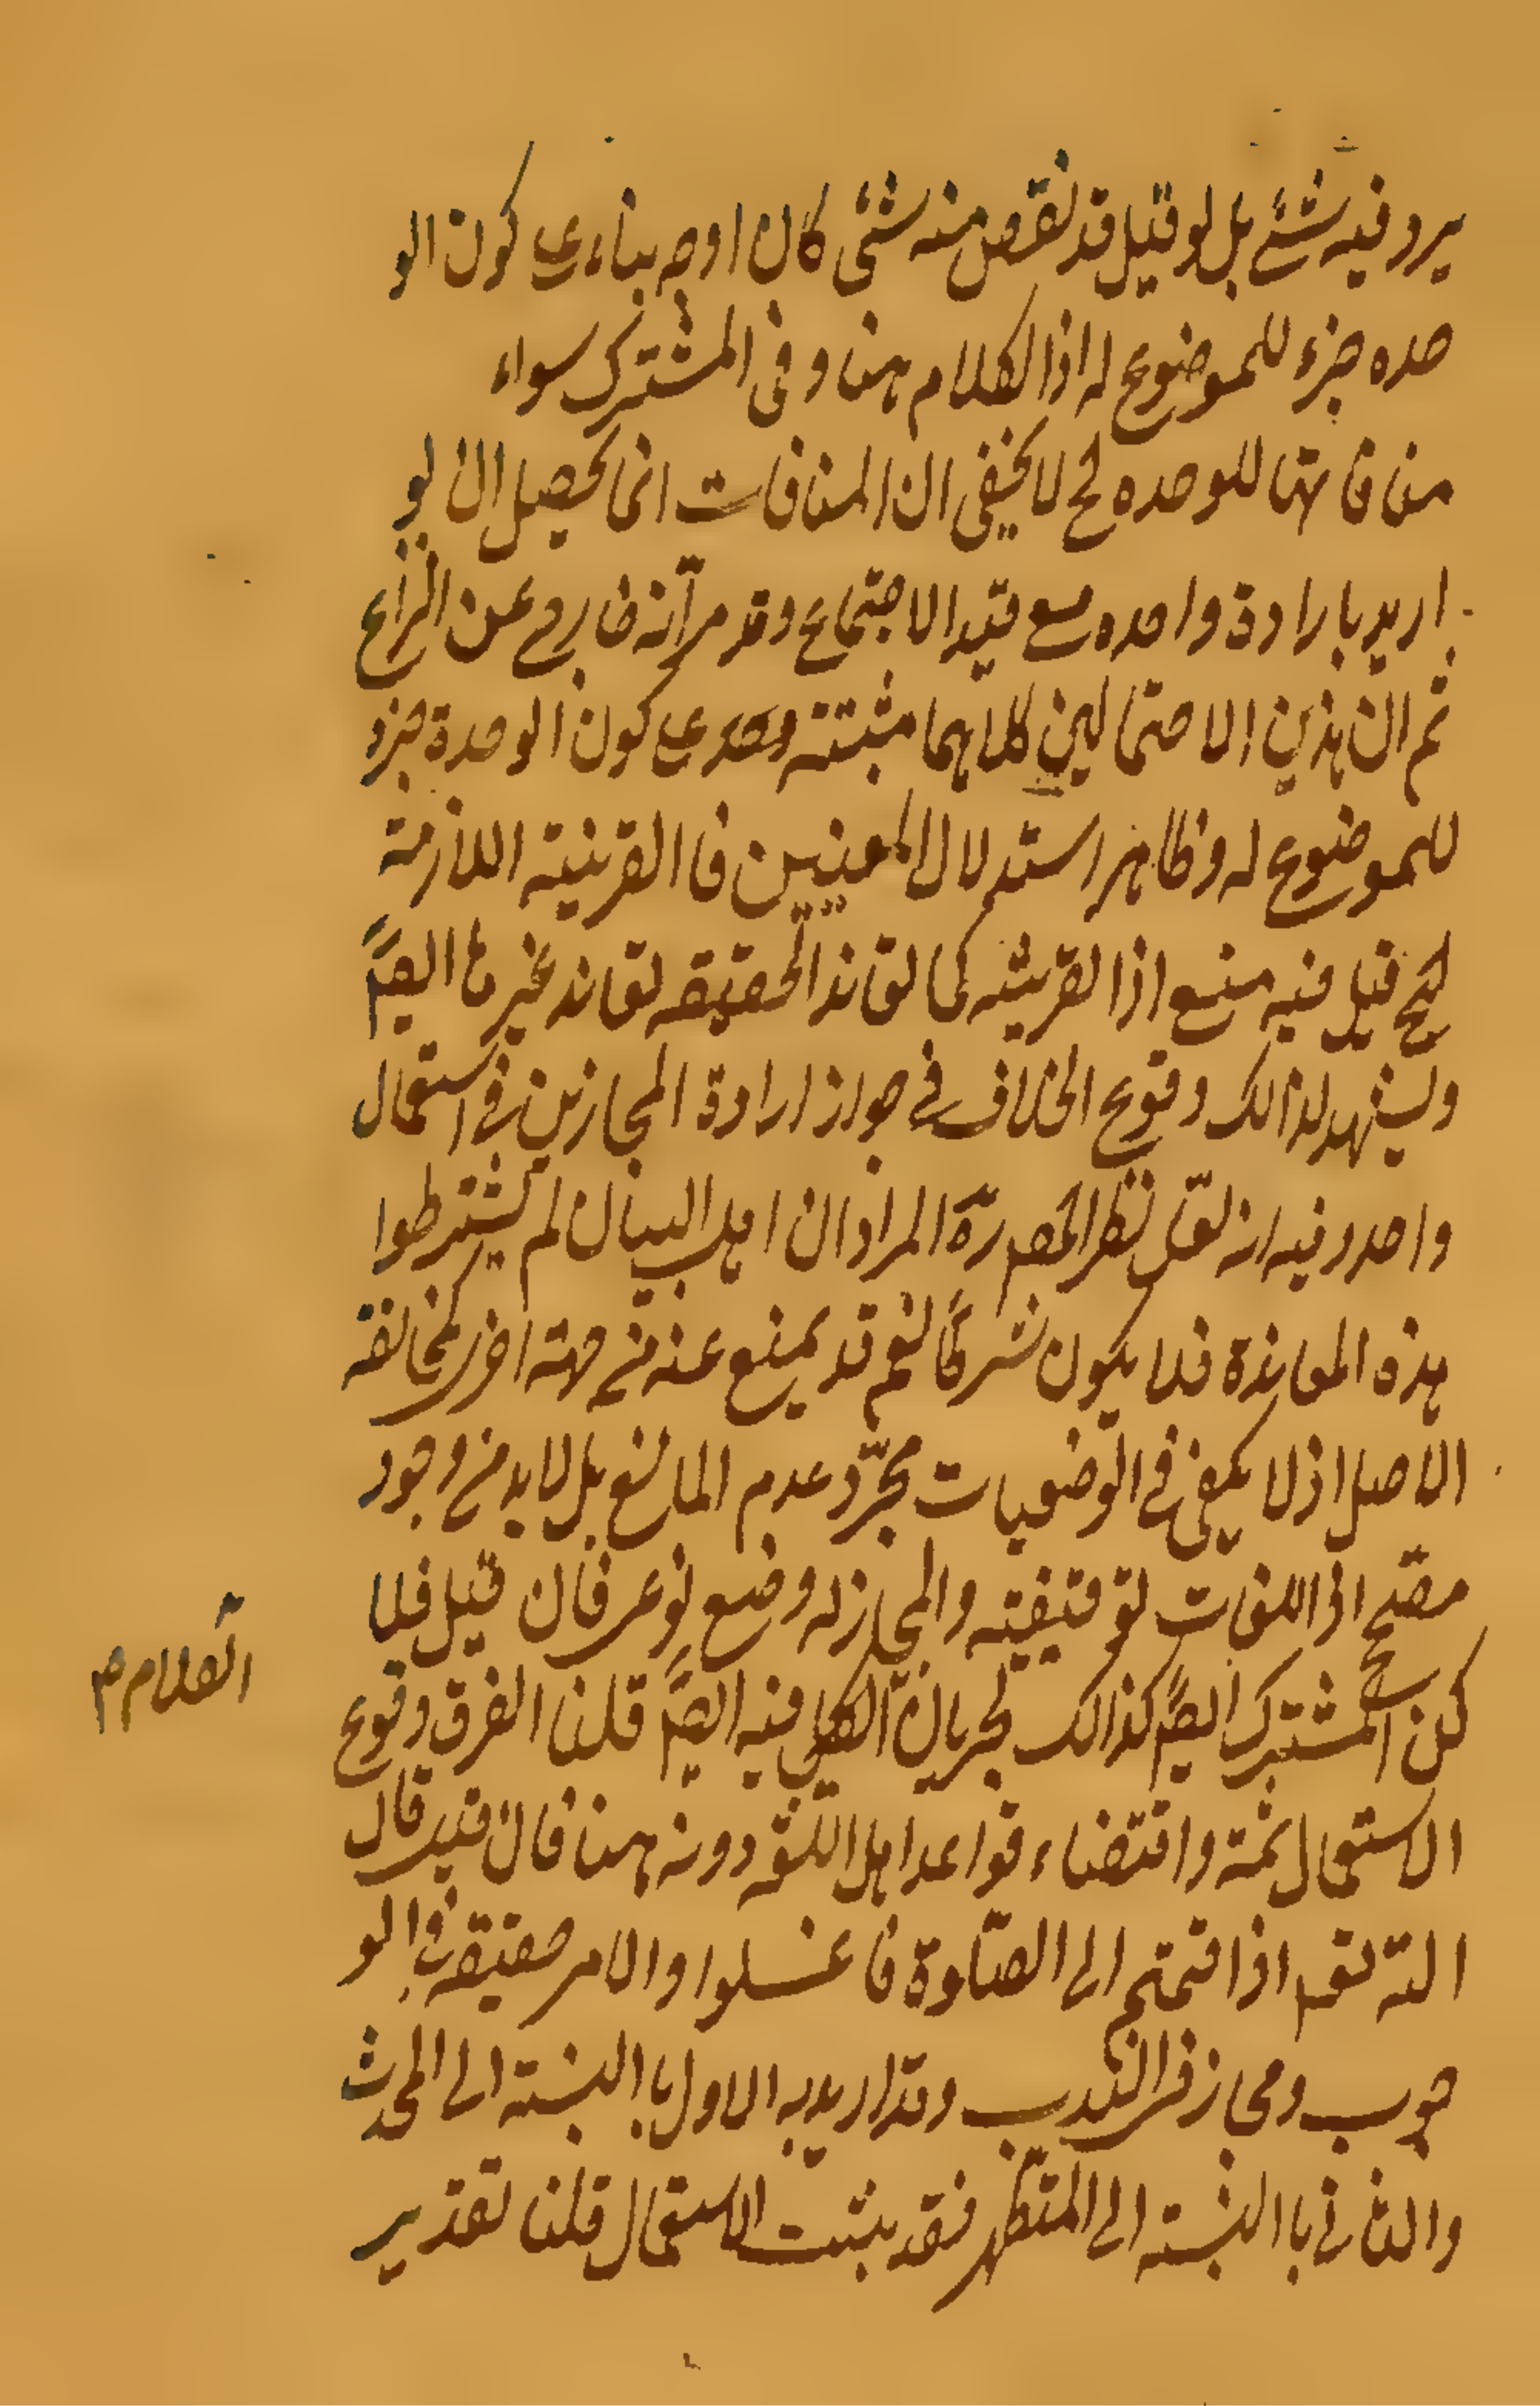 يرد فيه شئ بل لو قيل قد نقص منه شئى كان اوجه بناء على كون الو
حده جزء للموضوع له اذ الكلام هنا و فى المشترك سواء
منافاتها للوحده لح لا يخفى ان المنافات انما يحصل ان لو
اريد بارادة واحده مع قيد الاجتماع وقد مر آنه خارج عن النزاع
ثم ان هذين الاحتمالين كلاهما مثبتته على كون الوحدة جزء
للموضوع له و ظاهر استدلال المعينين فا القرينيته اللازمته
لح قيل فيه منع اذ القرينه كما تعاند الحقيقه تعاند غيرها ايضًا
ويشهد لذالك وقوع الخلاف فى جواز ارادة المجازين فى استعمال
واحد وفيه انه لعل نظر المص ره المراد ان اهل البيان لم يشترطوا
هذه المعاندة فلا يكون شرطًا نعم قد يمنع عنه من جهته اخرى لمخالفته
الاصل اذ لا يكفى فى الوضعيات مجرّد عدم المانع بل لا بد من وجود
مصحّح اذ اللغات توقيفيته والمجاز له وضع نوعى فان قيل فلا
كن المشترك ايضًا كذالك لجريان الكلام فيه ايضًا قلنا الفرق وقوع
الكلام م
الاستعمال ثمة واقتضاء قواعد اهل اللغه دونه هنا فان قيل قال
الله تعم اذا قمتم الى الصّلوة فاغسلوا والامر حقيقه فى الو
جوب و مجاز فى الندب وقد اريد به الاول باالنسبته الى المحدث
والثانى باالنسبته الى المتطهر فقد يثبت الاستعمال قلنا تقدير